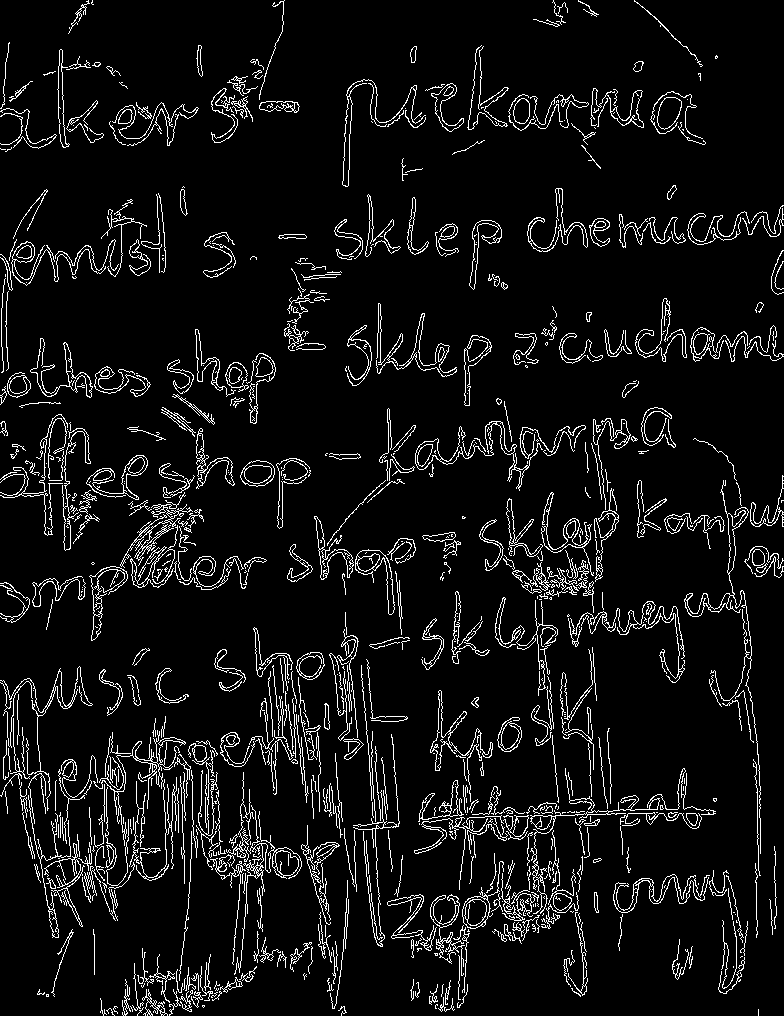 baker's - piekarnia
chemist's - sklep chemiczn
clothes shop - sklep z ciuchami
coffee shop - kawiarnia
computer shop - sklep komput
music shop - sklep muzyczny
newsagent's - kiosk
shop - sklep z zab.